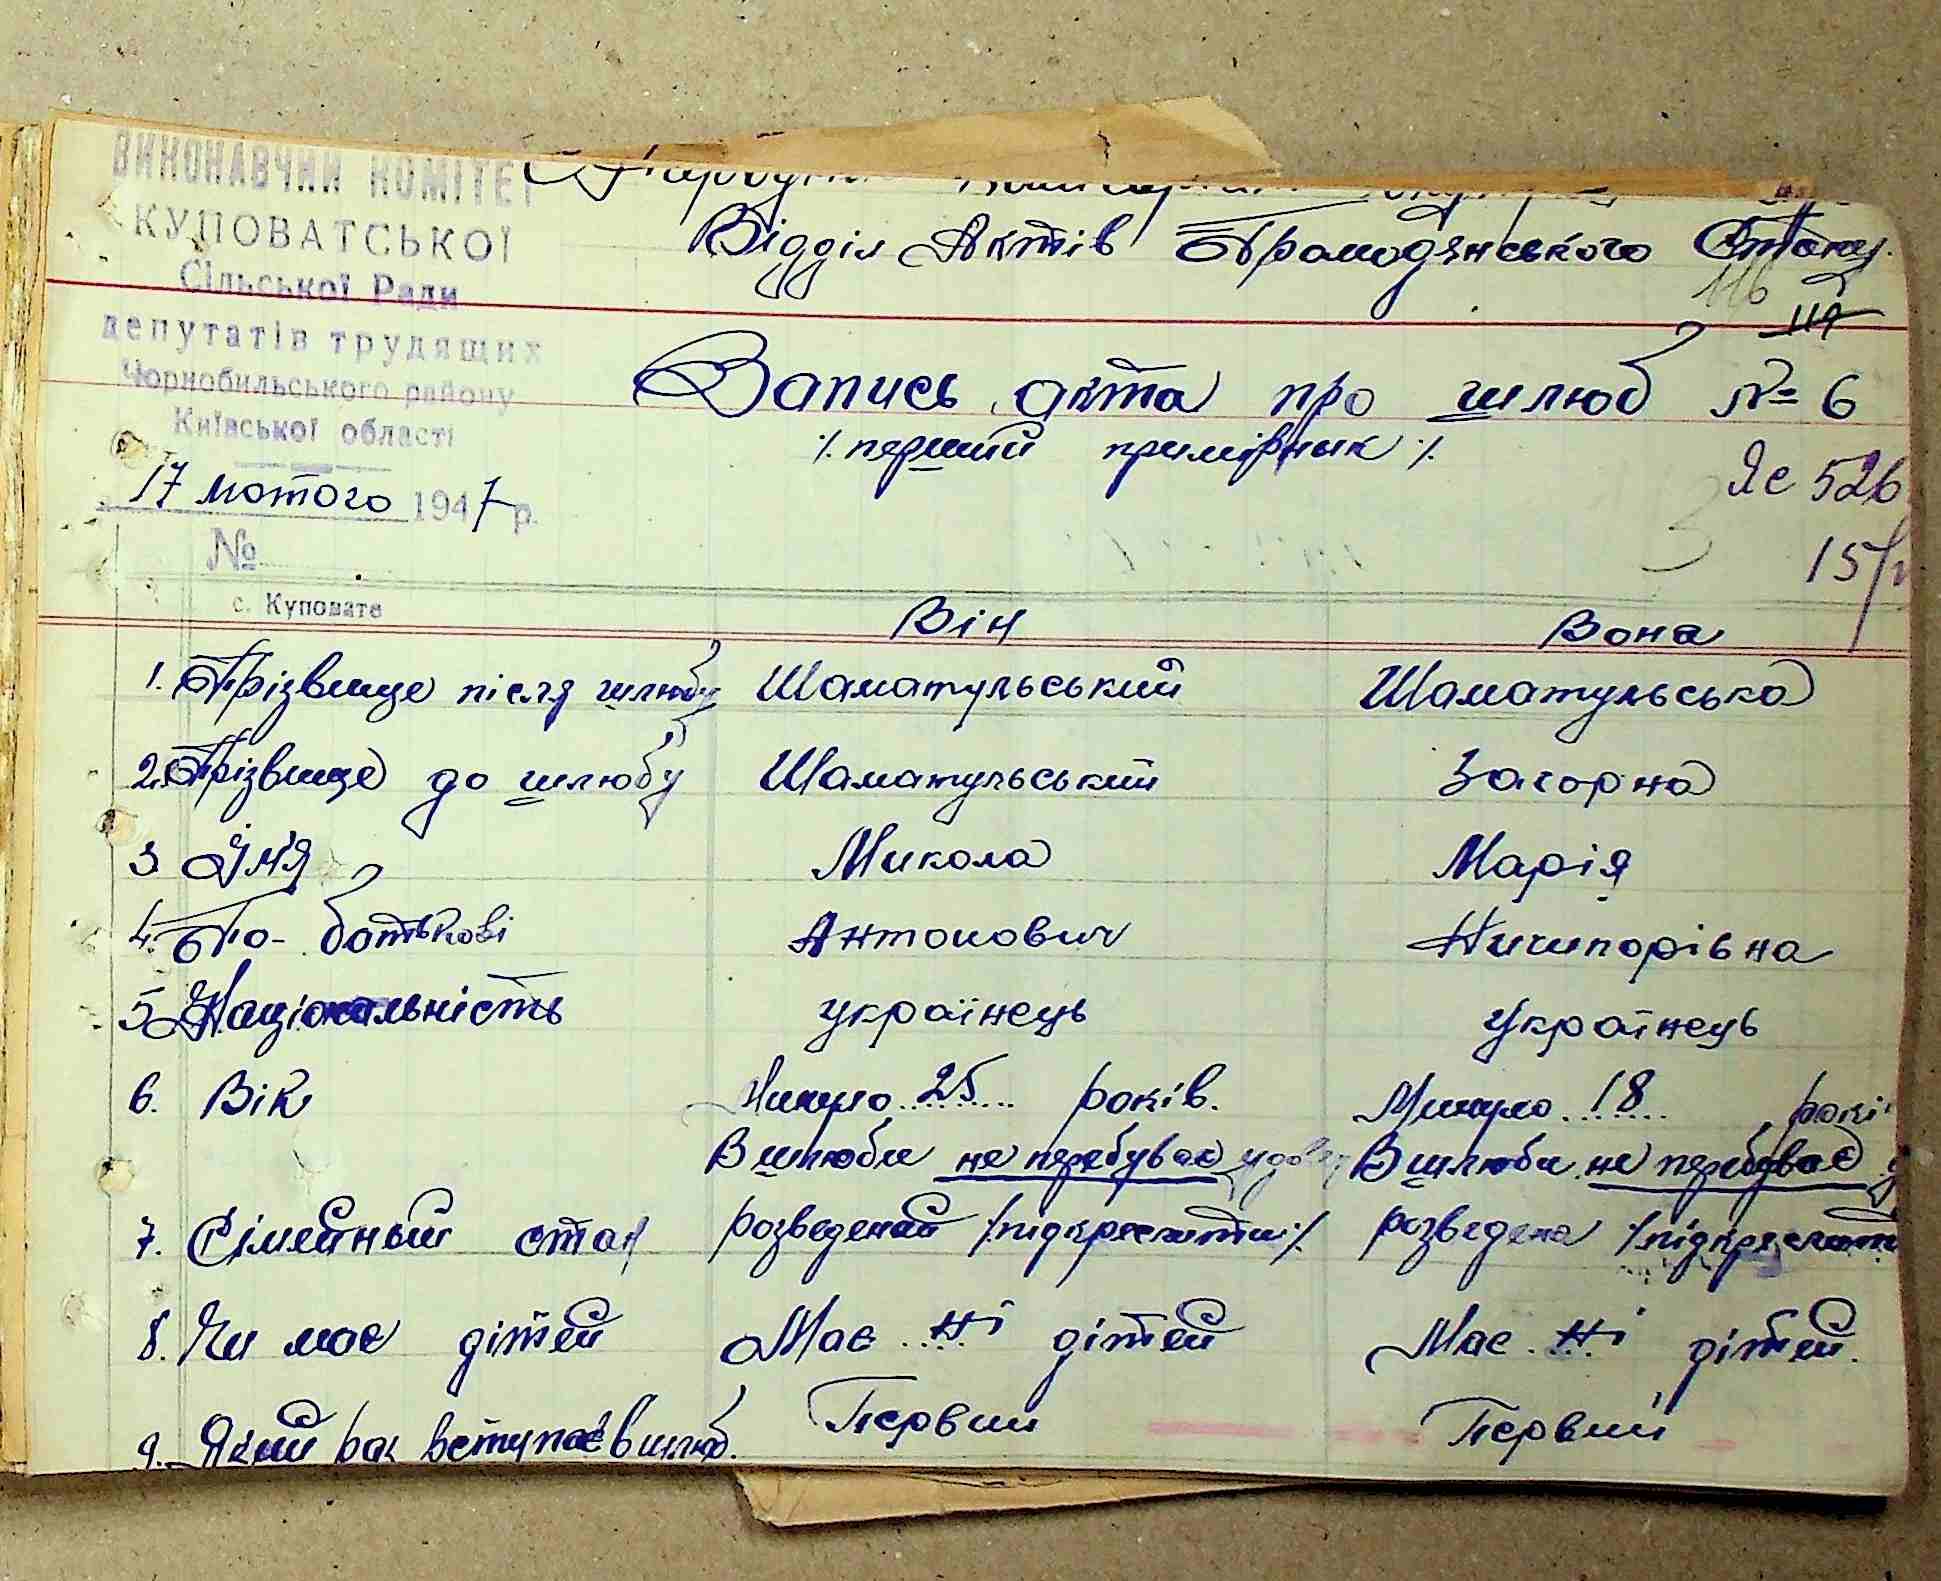 ВИКОНАВЧИЙ КОМІТЕТ
КУПОВАТСЬКОЇ
Сільської Ради
депутатів трудящих
Чорнобильського району
Київської області
17 лютого 1947 р.
№
с. Куповате
Відділ Актів Громодянського Стану.
116
Запись акта про шлюб № 6
/. перший примірник /.
Яс 526
Він Вона
1. Прізвище після шлюбу Шаматульський Шаматульська
2. Прізвище до шлюбу Шаматульський Загорна
3 Ім'я Микола Марія
4. По-батькові Антонович Ничипорівна
5 Національність українець Українець
6. Вік Минуло 25 років. Минуло 18 рокі
В шлюби не перебуває удовец В шлюби не перебуває
7. Сімейный стан розведений /.підкреслити/. розведена /.підкреслити
8. Чи має дітей Має ні дітей Має ні дітей.
9. Який раз вступає в шлюб. Первий Первий